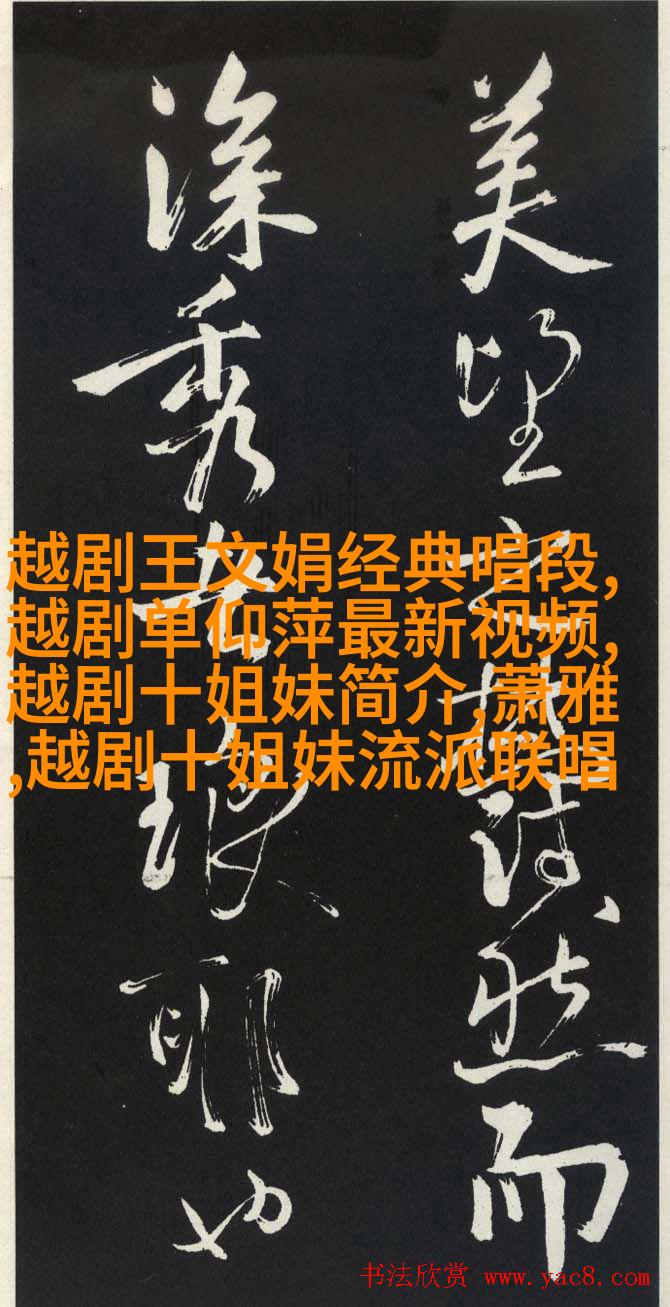 美望之蔚然而
深秀者琅耶也
越剧王文娟经典唱段,
越剧单仰萍最新视频,
越剧十姐妹简介,萧雅
,越剧十姐妹流派联唱
书法欣赏 www.yac8.com